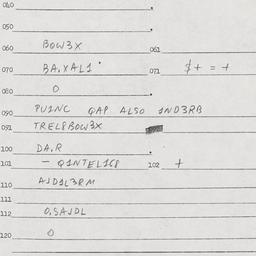 040
050
060 BOW3X 061
070 BA,XAL1 071 $+ = +
080 O
090 PU1NC GAP ALSO 1ND3RB
091 TREL8BOW3X
100 DA,R
101 - Q1NTEL1C8 102 +
110 AJD1L3RM
111
112 O,SAJDL
120 O